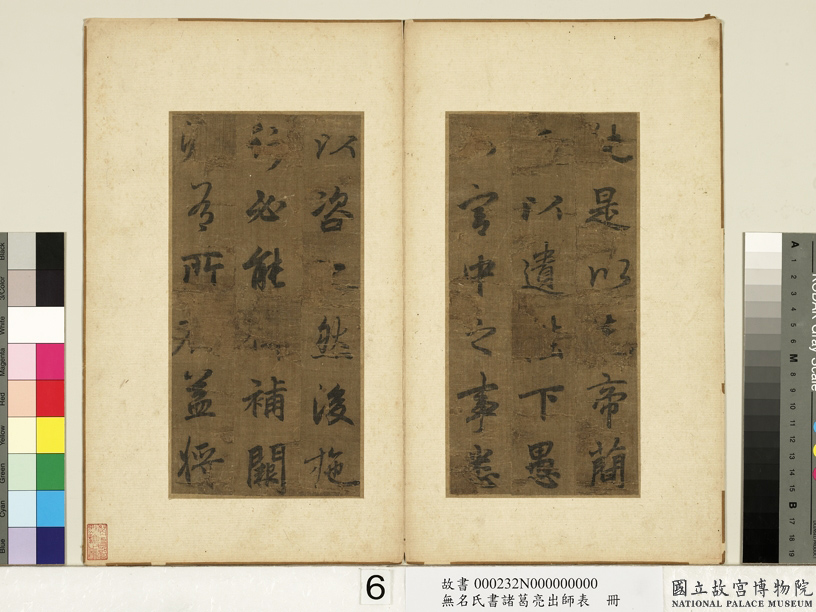 是以帝蕳
以遺下愚
宮中之事悉
以咨然後施
必能補闕
有所益將
6
故書 000232N000000000
無名氏書諸葛亮出師表 冊
國立故宮博物院
NATIONAL PALACE MUSEUM
Black
3/Color
White
Magenta
Red
Yellow
Green
Cyan
Blue
A
1
2
3
4
5
6
M
8
9
10
11
12
13
14
15
B
17
18
19